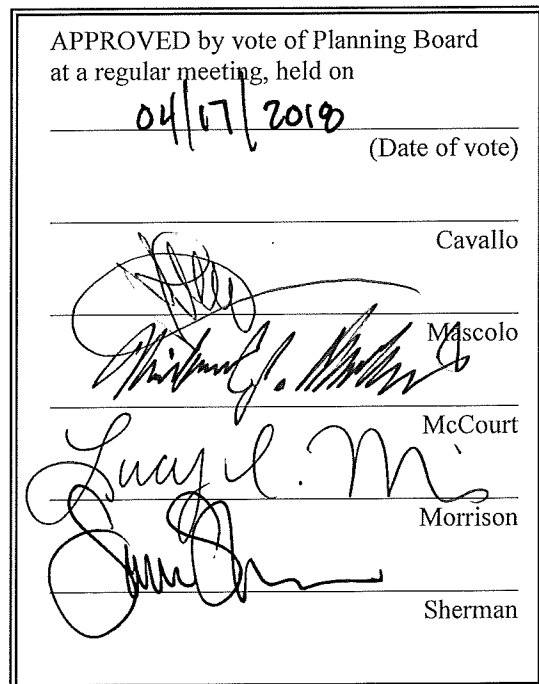 APPROVED by vote of Planning Board
at a regular meeting, held on
04/17/2018
(Date of vote)
Cavallo
Mascolo
McCourt
Lucy C. M
Morrison
Sherman